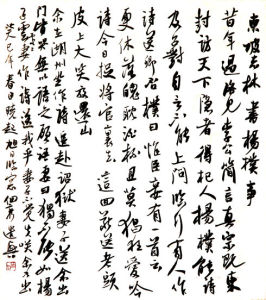 東坡志林書楊樸事
昔年過洛見李公簡言真宗既東
封訪天下隱者得杞人楊樸能詩
及召對自言不能上問臨行有人作
詩送卿否樸曰惟臣妾有一首云
更休落魄耽杯酒且莫猖狂愛吟
詩今日捉將官裏去這回斷送老頭
皮上大笑放還山
余在湖州坐作詩追赴詔獄妻子送余出
門皆哭無以語之顧語妻曰獨不能如楊
子雲妻作詩送我乎妻子不覺失笑余乃出
癸巳年春日趙旭